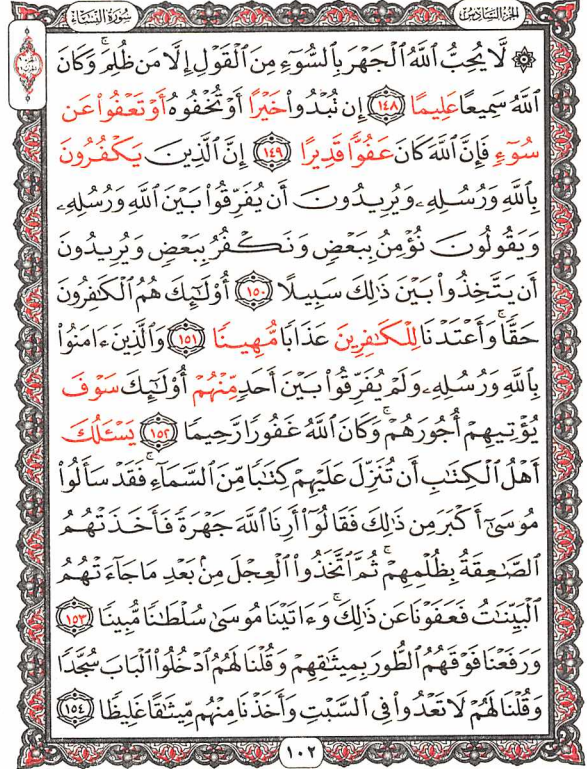 الجزء السادس
سورة النساء
۞ لَّا يُحِبُّ ٱللَّهُ ٱلْجَهْرَ بِٱلسُّوٓءِ مِنَ ٱلْقَوْلِ إِلَّا مَن ظُلِمَ ۚ وَكَانَ
ٱللَّهُ سَمِيعًا عَلِيمًا ﴿١٤٨﴾ إِن تُبْدُوا۟ خَيْرًا أَوْ تُخْفُوهُ أَوْ تَعْفُوا۟ عَن
سُوٓءٍ فَإِنَّ ٱللَّهَ كَانَ عَفُوًّا قَدِيرًا ﴿١٤٩﴾ إِنَّ ٱلَّذِينَ يَكْفُرُونَ
بِٱللَّهِ وَرُسُلِهِۦ وَيُرِيدُونَ أَن يُفَرِّقُوا۟ بَيْنَ ٱللَّهِ وَرُسُلِهِۦ
وَيَقُولُونَ نُؤْمِنُ بِبَعْضٍ وَنَكْفُرُ بِبَعْضٍ وَيُرِيدُونَ
أَن يَتَّخِذُوا۟ بَيْنَ ذَٰلِكَ سَبِيلًا ﴿١٥٠﴾ أُو۟لَٰٓئِكَ هُمُ ٱلْكَٰفِرُونَ
حَقًّا ۚ وَأَعْتَدْنَا لِلْكَٰفِرِينَ عَذَابًا مُّهِينًا ﴿١٥١﴾ وَٱلَّذِينَ ءَامَنُوا۟
بِٱللَّهِ وَرُسُلِهِۦ وَلَمْ يُفَرِّقُوا۟ بَيْنَ أَحَدٍ مِّنْهُمْ أُو۟لَٰٓئِكَ سَوْفَ
يُؤْتِيهِمْ أُجُورَهُمْ ۗ وَكَانَ ٱللَّهُ غَفُورًا رَّحِيمًا ﴿١٥٢﴾ يَسْـَٔلُكَ
أَهْلُ ٱلْكِتَٰبِ أَن تُنَزِّلَ عَلَيْهِمْ كِتَٰبًا مِّنَ ٱلسَّمَآءِ ۚ فَقَدْ سَأَلُوا۟
مُوسَىٰٓ أَكْبَرَ مِن ذَٰلِكَ فَقَالُوٓا۟ أَرِنَا ٱللَّهَ جَهْرَةً فَأَخَذَتْهُمُ
ٱلصَّٰعِقَةُ بِظُلْمِهِمْ ۚ ثُمَّ ٱتَّخَذُوا۟ ٱلْعِجْلَ مِنۢ بَعْدِ مَا جَآءَتْهُمُ
ٱلْبَيِّنَٰتُ فَعَفَوْنَا عَن ذَٰلِكَ ۚ وَءَاتَيْنَا مُوسَىٰ سُلْطَٰنًا مُّبِينًا ﴿١٥٣﴾
وَرَفَعْنَا فَوْقَهُمُ ٱلطُّورَ بِمِيثَٰقِهِمْ وَقُلْنَا لَهُمُ ٱدْخُلُوا۟ ٱلْبَابَ سُجَّدًا
وَقُلْنَا لَهُمْ لَا تَعْدُوا۟ فِى ٱلسَّبْتِ وَأَخَذْنَا مِنْهُم مِّيثَٰقًا غَلِيظًا ﴿١٥٤﴾
١٠٢